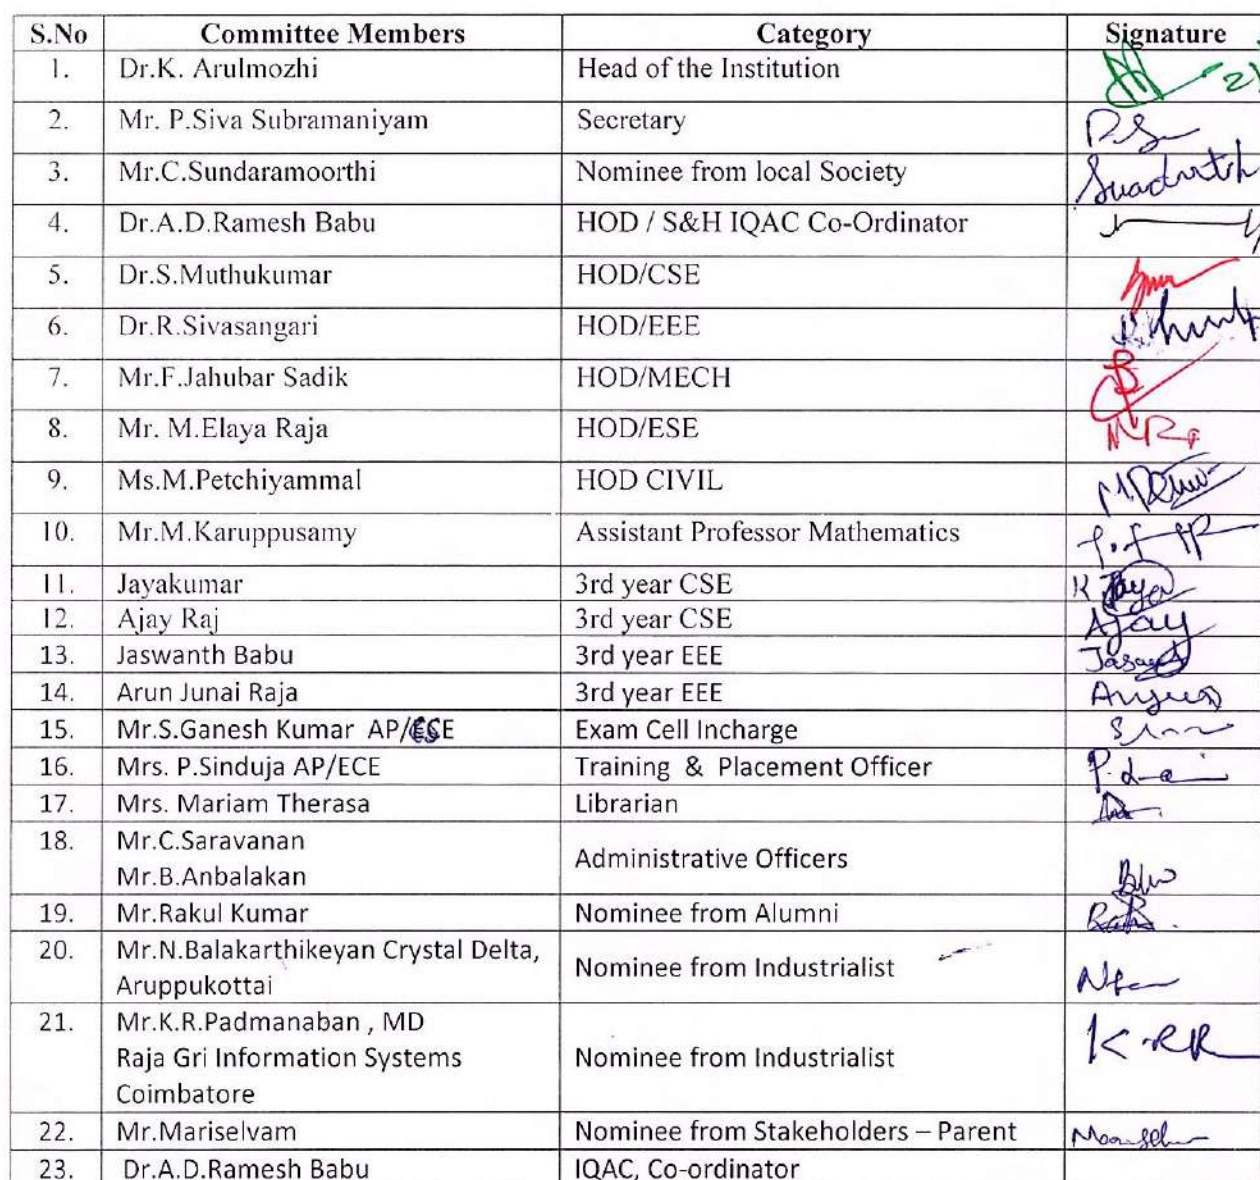 S.No Committee Members Category Signature
1. Dr.K. Arulmozhi Head of the Institution
2. Mr. P.Siva Subramaniyam Secretary
3. Mr.C.Sundaramoorthi Nominee from local Society
4. Dr.A.D.Ramesh Babu HOD / S&H IQAC Co-Ordinator
5. Dr.S.Muthukumar HOD/CSE
6. Dr.R.Sivasangari HOD/EEE
7. Mr.F.Jahubar Sadik HOD/MECH
8. Mr. M.Elaya Raja HOD/ESE
9. Ms.M.Petchiyammal HOD CIVIL
10. Mr.M.Karuppusamy Assistant Professor Mathematics
11. Jayakumar 3rd year CSE
12. Ajay Raj 3rd year CSE Ajay
13. Jaswanth Babu 3rd year EEE
14. Arun Junai Raja 3rd year EEE
15. Mr.S.Ganesh Kumar Exam Cell Incharge
16. Mrs. P.Sinduja AP/ECE Training & Placement Officer
17. Mrs. Mariam Therasa Librarian
18. Mr.C.Saravanan
Mr.B.Anbalakan Administrative Officers
19. Mr.Rakul Kumar Nominee from Alumni
20. Mr.N.Balakarthikeyan Crystal Delta,
Aruppukottai Nominee from Industrialist
21. Mr.K.R.Padmanaban , MD
Raja Gri Information Systems Nominee from Industrialist
Coimbatore
22. Mr.Mariselvam Nominee from Stakeholders – Parent
23. Dr.A.D.Ramesh Babu IQAC, Co-ordinator